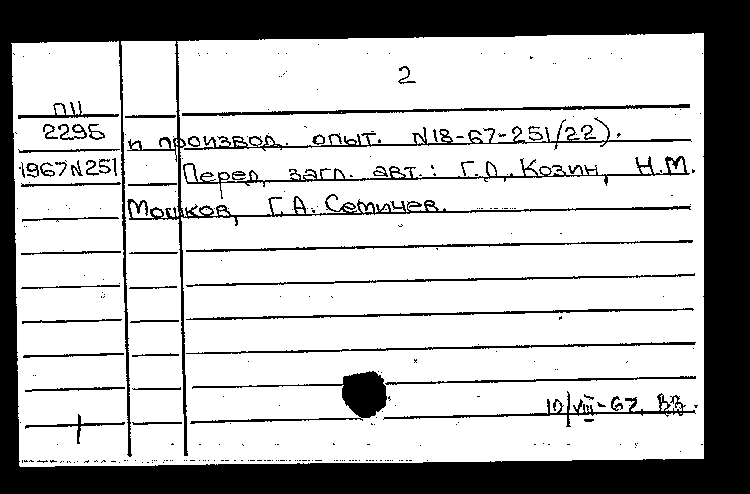 2
ПЦ
2295
1967N251
и производ. опыт. N18-67-251/22).
Перед загл. авт.: Г.Д. Козин, Н.М.
Мошков, Г.А. Сетичев.
10/VIII-67. ВВ.